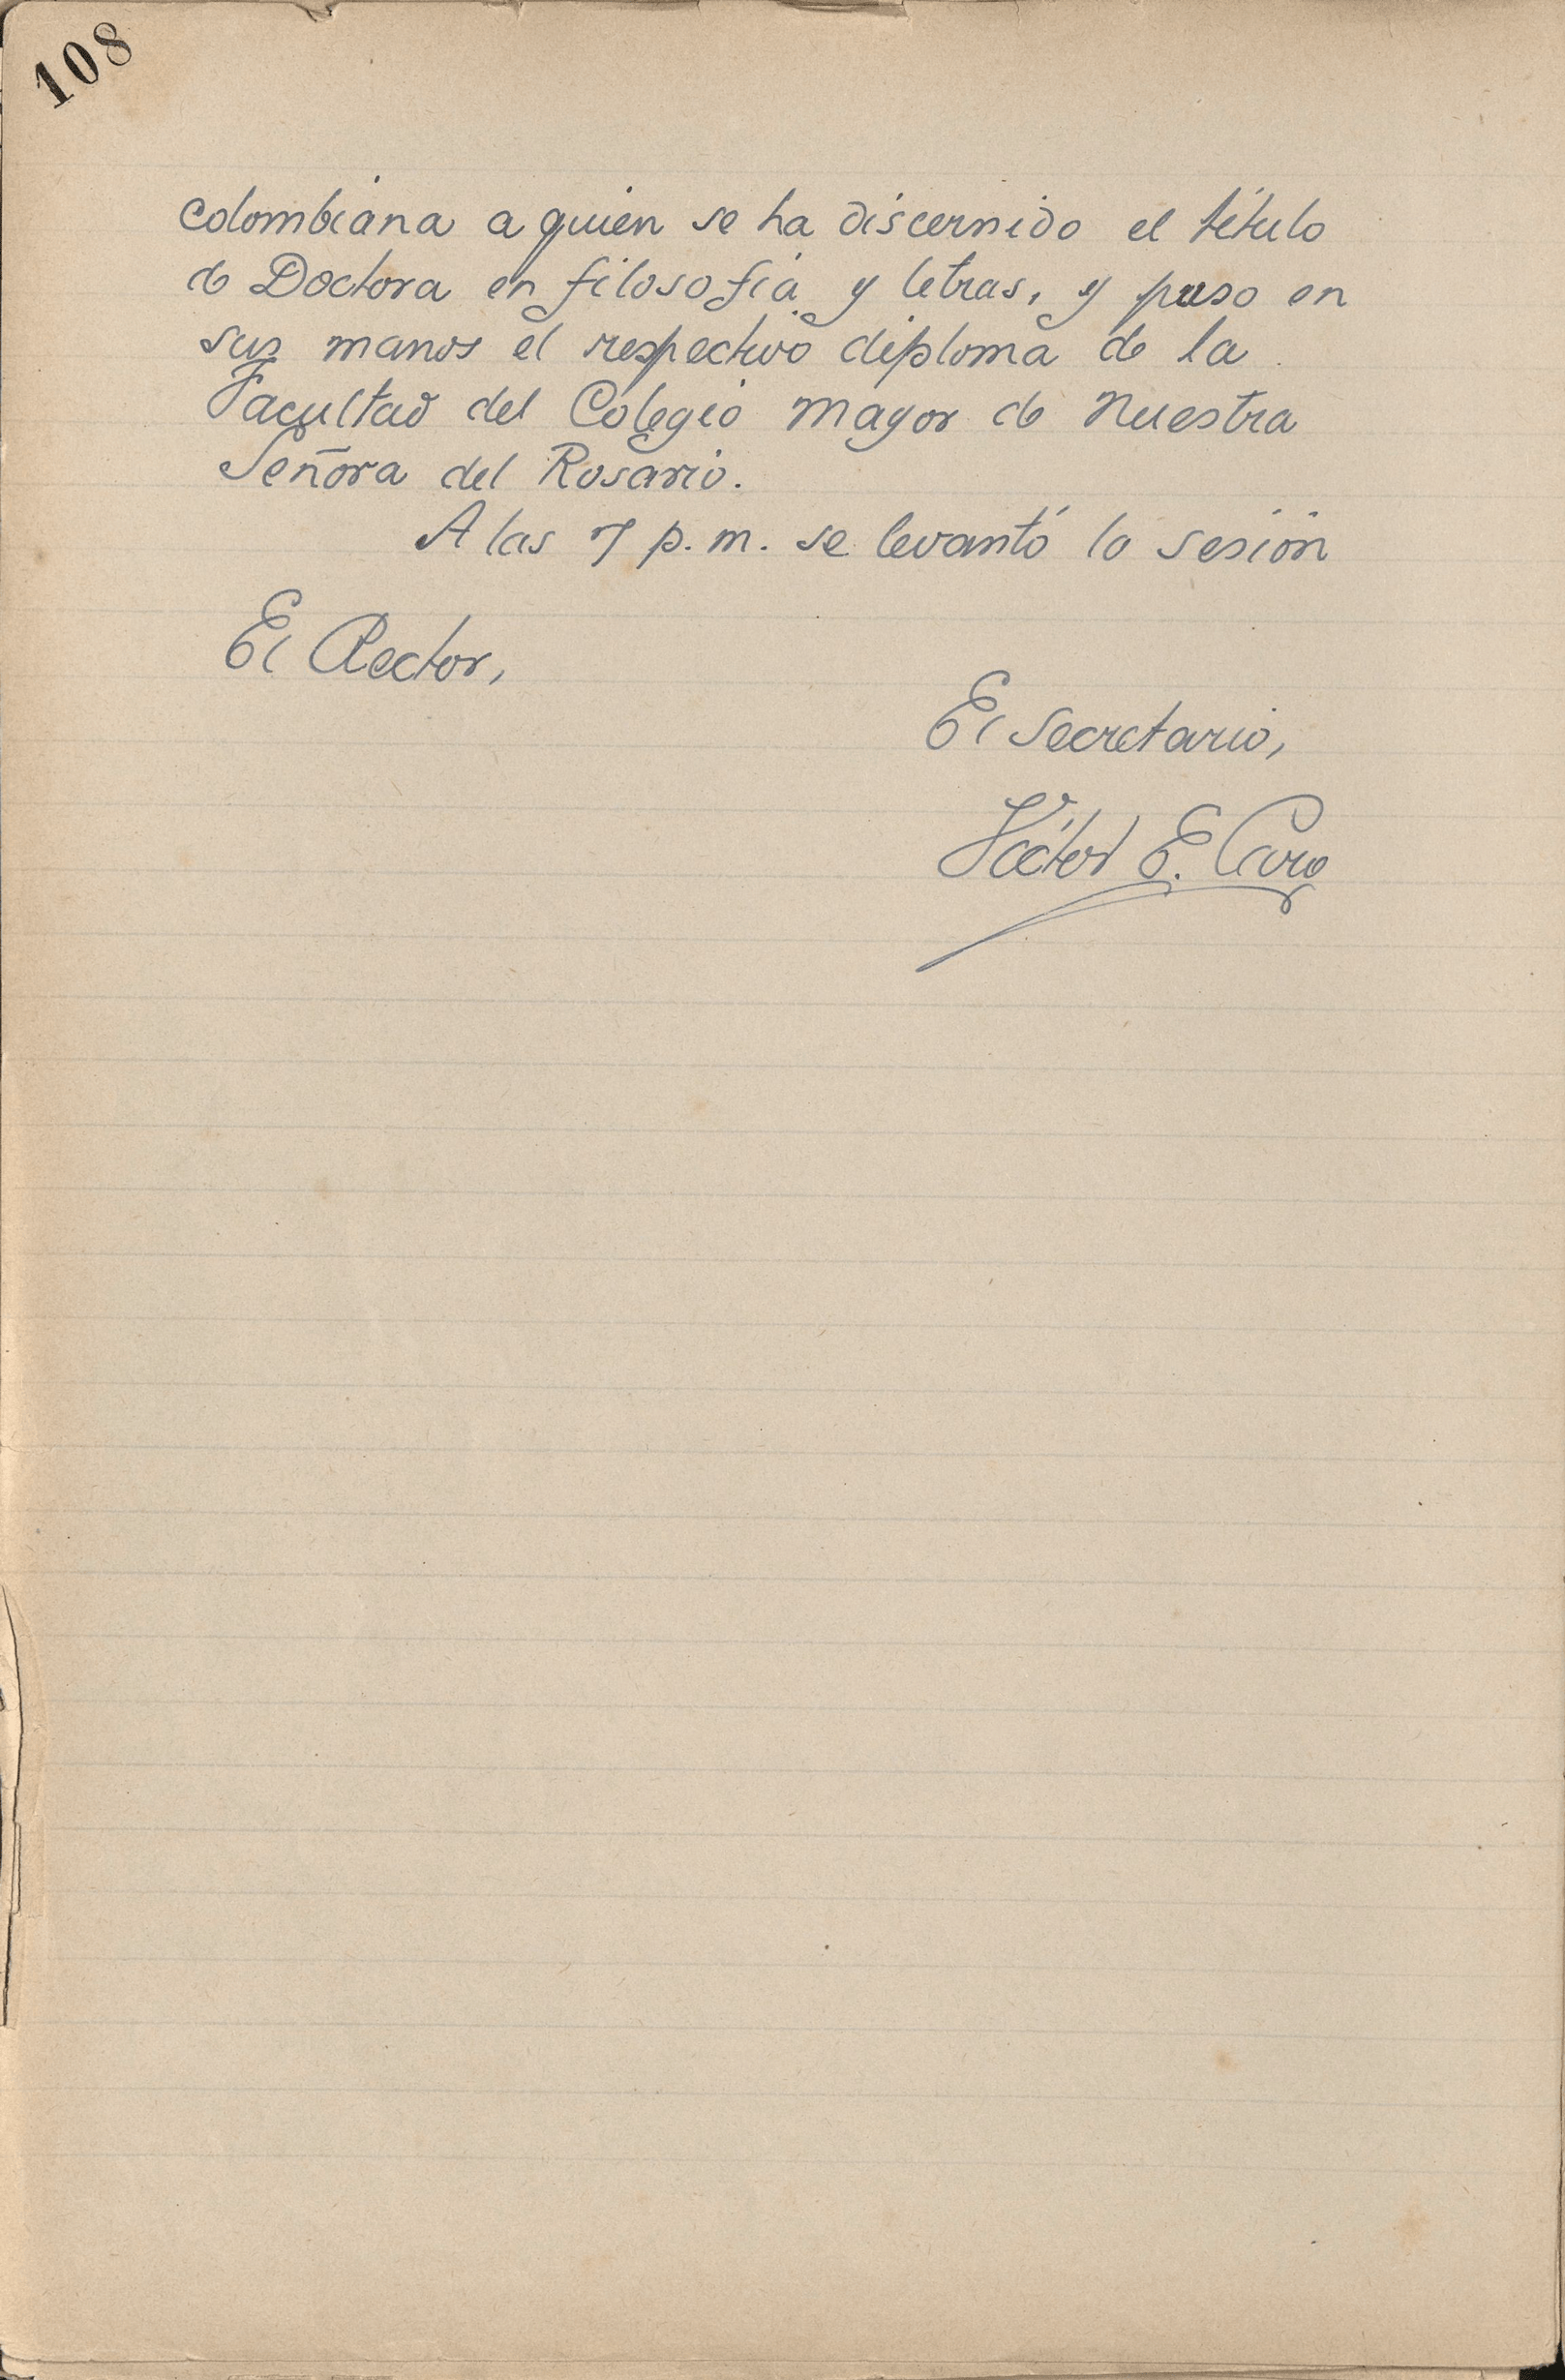 108
colombiana a quien se ha discernido el título
de Doctora en filosofía y letras, y puso en
sus manos el respectivo diploma de la
Facultad del Colegio Mayor de Nuestra
Señora del Rosario.
A las 7 p. m. se levantó la sesión
El Rector,
El Secretario,
Víctor E. Caro